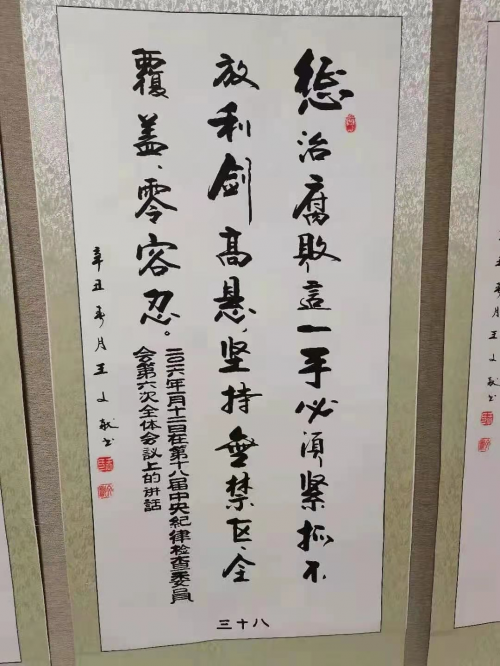 惩治腐败这一手必须紧抓不
放利剑高悬，坚持无禁区、全
覆盖、零容忍。
二〇一六年一月十二日在第十八届中央纪律检查委员
会第六次全体会议上的讲话
辛丑 月王文 书
三十八